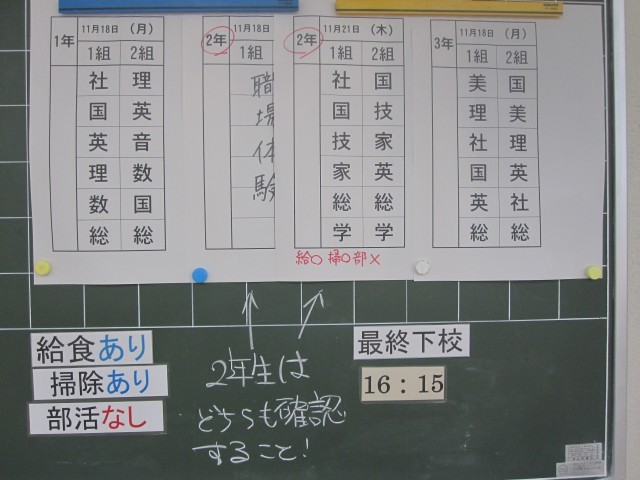 1年 11月18日 (月)
1組 2組
社 理
国 英
英 音
理 数
数 国
総 総
2年 11月18日
1組
職
場
体
験
2年 11月21日 (木)
1組 2組
社 国
国 技
技 家
家 英
総 総
学 学
給○ 掃○ 部×
3年 11月18日 (月)
1組 2組
美 国
理 美
社 理
国 英
英 社
総 総
給食あり
掃除あり
部活なし
2年生は
どちらも確認
すること!
最終下校
16:15